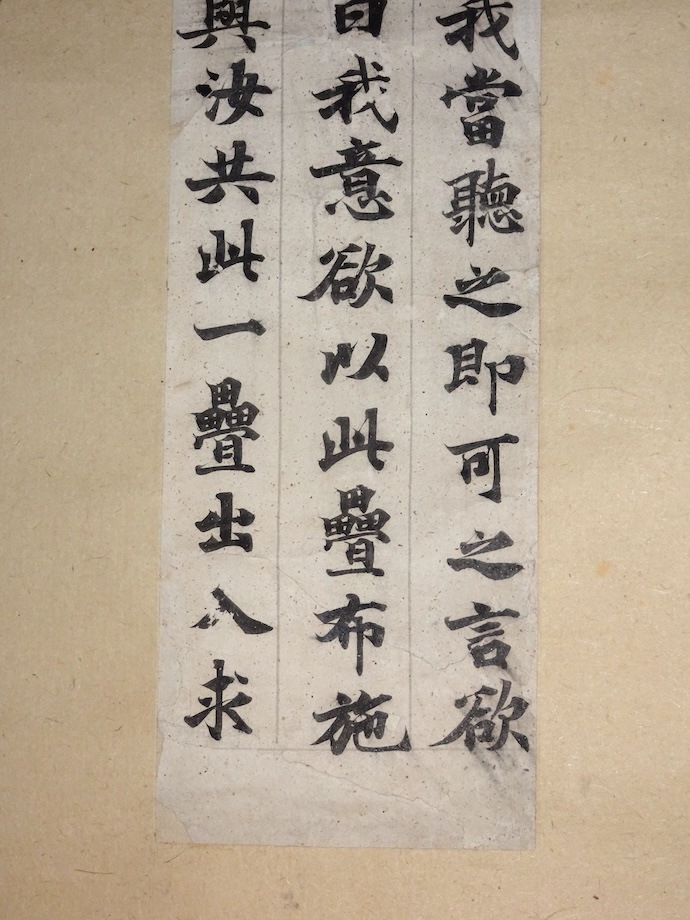 我當聽之即可之言欲
曰我意欲以此疊布施
與汝共此一疊出入求